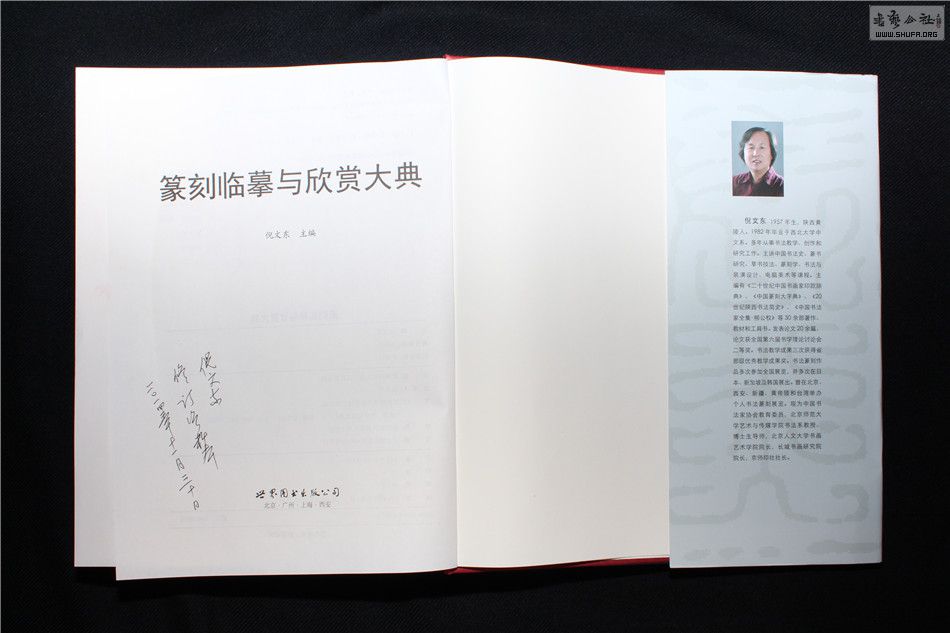 篆刻临摹与欣赏大典
倪文东 主编
倪文东
修订
二〇一四年十一月三十日
世界图书出版公司
北京·广州·上海·西安
倪文东 1957年生，陕西黄
陵人。1982年毕业于西北大学中
文系。多年从事书法教学、创作和
研究工作。主讲中国书法史、篆书
研究、草书技法、篆刻学、书法与
装潢设计、电脑美术等课程。主
编有《二十世纪中国书画家印款辞
典》、《中国篆刻大字典》、《20
世纪陕西书法简史》、《中国书法
家全集·柳公权》等30余部著作、
教材和工具书。发表论文20余篇，
论文获全国第六届书学理论讨论会
二等奖。书法教学成果三次获得省
部级优秀教学成果奖。书法篆刻作
品多次参加全国展览，并多次在日
本、新加坡及韩国展出。曾在北京、
西安、新疆、黄帝陵和台湾举办
个人书法篆刻展览。现为中国书
法家协会教育委员，北京师范大
学艺术与传媒学院书法系教授、
博士生导师，北京人文大学书画
艺术学院院长，长城书画研究院
院长，京师印社社长。
WWW.SHUFA.ORG